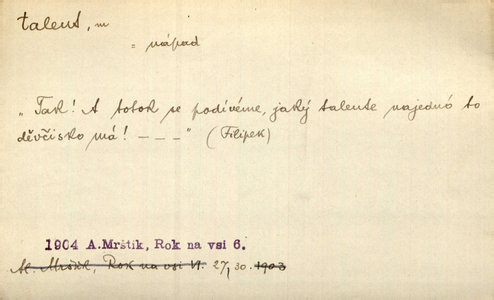 talent, m
= nápad
„Tak! A totok se podíveme, jaký talente najednó to
děvčisko má! – – –" (Filípek)
1904 A. Mrštík, Rok na vsi 6.
Al. Mrštík, Rok na vsi VI. 27, 30. 1903